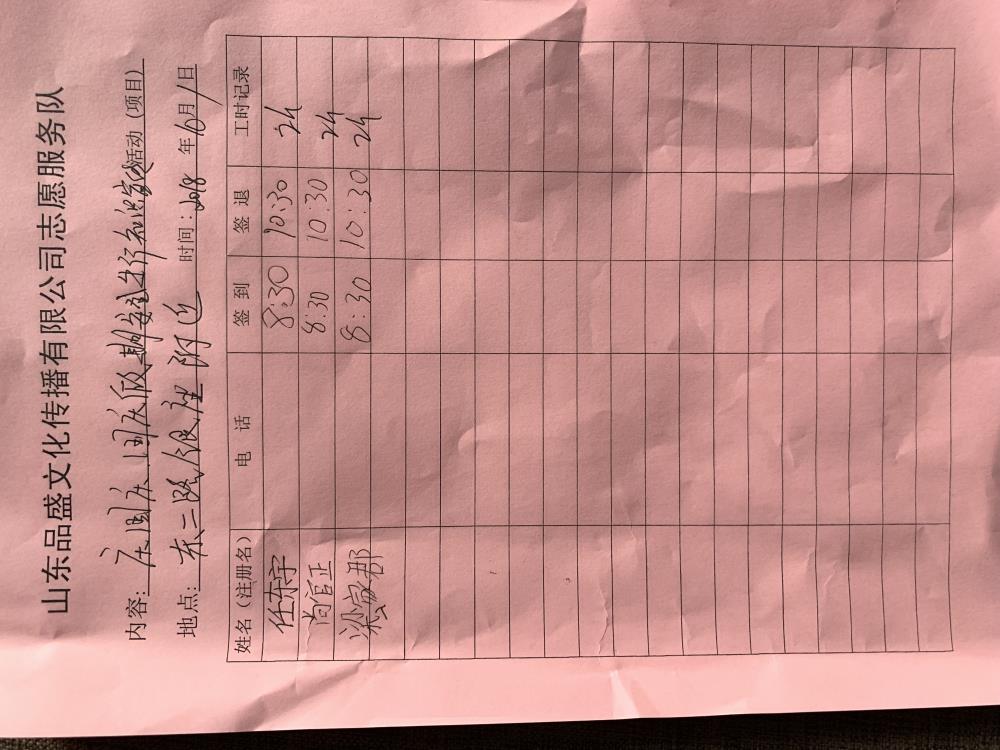 山东品盛文化传播有限公司志愿服务队
内容：庆国庆.国庆假期安全出行知识活动（项目）
地点：东二路银座附近 时间：2018年10月1日
姓名（注册名） 电话 签到 签退 工时记录
任东宇 8:30 10:30 2h
尚官正 8:30 10:30 2h
梁家郡 8:30 10:30 2h